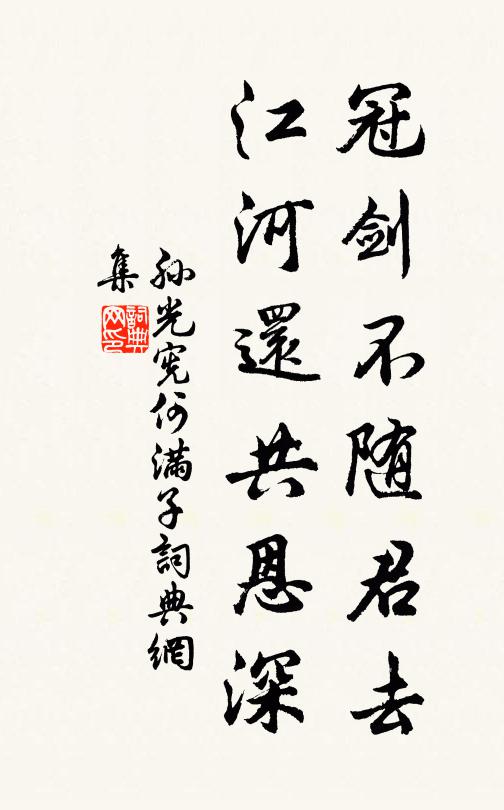 冠剑不随君去
江河還共恩深
孙光宪何满子詞典網
集
詞典
网印